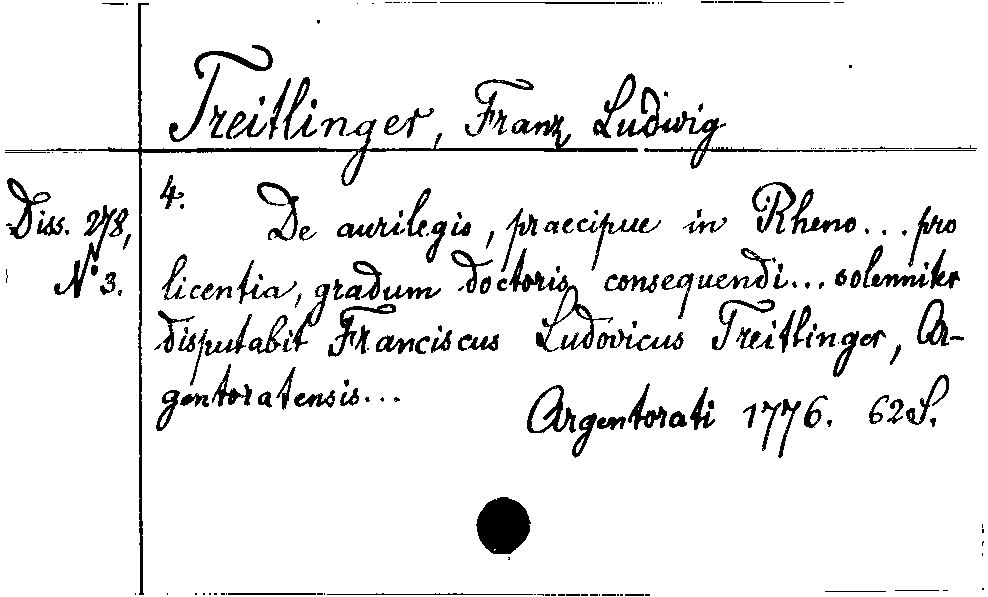 Treitlinger, Franz Ludwig
Diss. 278,
N° 3.
4.
De aurilegio, praecipue in Rheno... pro
licentia, gradum doctoris consequendi... solenniter
disputabit Franciscus Ludovicus Treitlinger, Ar-
gentoratensis...
Argentorati 1776. 62 S.